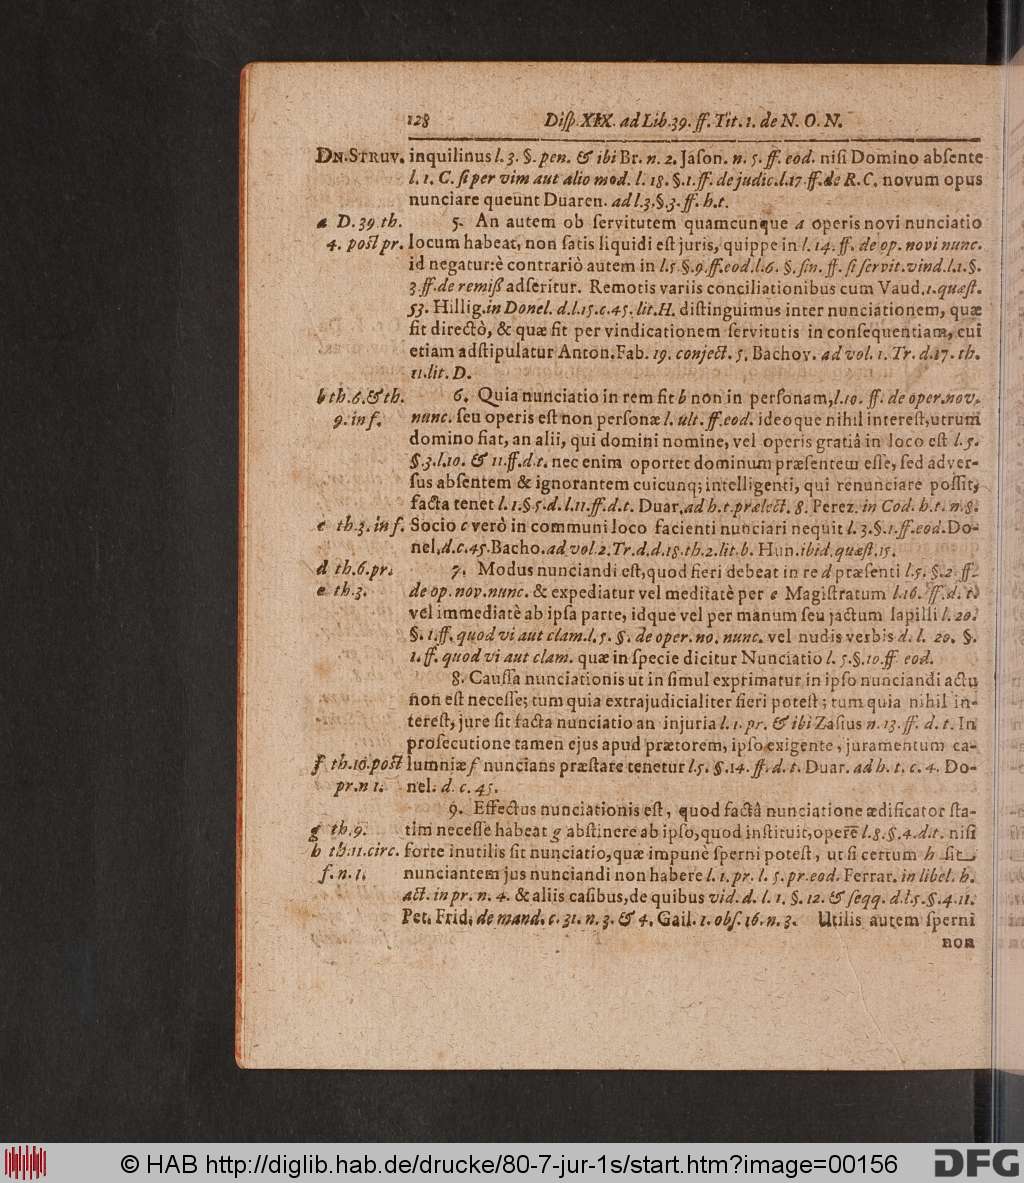 128 Disp. XIX. ad Lib. 39. ff. Tit. 1. de N. O. N.
DN. STRUV. inquilinus l. 3. §. pen. & ibi Br. n. 2. Jason. n. 5. ff. eod. nisi Domino absente
l. 1. C. si per vim aut alio mod. l. 18. §. 1. ff. de judic. l. 17 ff. de R. C. novum opus
nunciare queunt Duaren. ad l. 3. §. 3. ff. h. t.
a D. 39. th. 5. An autem ob servitutem quamcunque a operis novi nunciatio
4. post pr. locum habeat, non satis liquidi est juris, quippe in l. 14. ff. de op. novi nunc.
id negatur: è contrariò autem in l. 5 §. 9. ff. eod. l. 6. §. fin. ff. si servit. vind. l. 1. §.
3. ff. de remiss adseritur. Remotis variis conciliationibus cum Vaud. 1. quæst.
53. Hillig. in Donel. d. l. 15. c. 45. lit. H. distinguimus inter nunciationem, quæ
fit directò, & quæ fit per vindicationem servitutis in consequentiam, cui
etiam adstipulatur Anton. Fab. 19. conject. 5. Bachov. ad vol. 1. Tr. d. 17. th.
11. lit. D.
b th. 6. & th. 6. Quia nunciatio in rem fit b non in personam, l. 10. ff. de oper. nov.
9. inf. nunc. seu operis est non personæ l. ult. ff. eod. ideoque nihil interest, utrum
domino fiat, an alii, qui domini nomine, vel operis gratiâ in loco est l. 5.
§. 3. l. 10. & 11. ff. d. t. nec enim oportet dominum præsentem esse, sed adver-
sus absentem & ignorantem cuicunq; intelligenti, qui renunciare possit,
facta tenet l. 1. §. 5. d. l. 11. ff. d. t. Duar. ad h. t. prælect. 8. Perez. in Cod. h. t. n. 8.
c th. 3. inf. Socio c verò in communi loco facienti nunciari nequit l. 3. §. 1. ff. eod. Do-
nel. d. c. 45. Bacho. ad vol. 2. Tr. d. d. 18. th. 2. lit. b. Hun. ibid. quæst. 15.
d th. 6. pr. 7. Modus nunciandi est, quod fieri debeat in re d præsenti l. 5. §. 2. ff.
e th. 3. de op. nov. nunc. & expediatur vel meditatè per e Magistratum l. 16. ff. d. t.
vel immediatè ab ipsa parte, idque vel per manum seu jactum lapilli l. 20.
§. 1. ff. quod vi aut clam. l. 5. §. de oper. no. nunc. vel nudis verbis d. l. 20. §.
1. ff. quod vi aut clam. quæ in specie dicitur Nunciatio l. 5. §. 10. ff. eod.
8. Caussa nunciationis ut in simul exprimatur in ipso nunciandi actu
non est necesse; tum quia extrajudicialiter fieri potest; tum quia nihil in-
terest, jure sit facta nunciatio an injuria l. 1. pr. & ibi Zasius n. 13. ff. d. t. In
prosecutione tamen ejus apud prætorem, ipso exigente, juramentum ca-
f th. 10. post lumniæ f nuncians præstare tenetur l. 5. §. 14. ff. d. t. Duar. ad h. t. c. 4. Do-
pr. n 1. nel. d. c. 45.
9. Effectus nunciationis est, quod factâ nunciatione ædificator sta-
g th. 9. tim necesse habeat g abstinere ab ipso, quod instituit, opere l. 8. §. 4. d. t. nisi
h th. 11. circ. forte inutilis sit nunciatio, quæ impunè sperni potest, ut si certum h sit
f. n. 1. nunciantem jus nunciandi non habere l. 1. pr. l. 5. pr. eod. Ferrar. in libel. h.
act. in pr. n. 4. & aliis casibus, de quibus vid. d. l. 1. §. 12. & seqq. d. l. 5. §. 4. 11.
Pet. Frid. de mand. c. 31. n. 3. & 4. Gail. 1. obs. 16. n. 3. Utilis autem sperni
non
© HAB http://diglib.hab.de/drucke/80-7-jur-1s/start.htm?image=00156 DFG